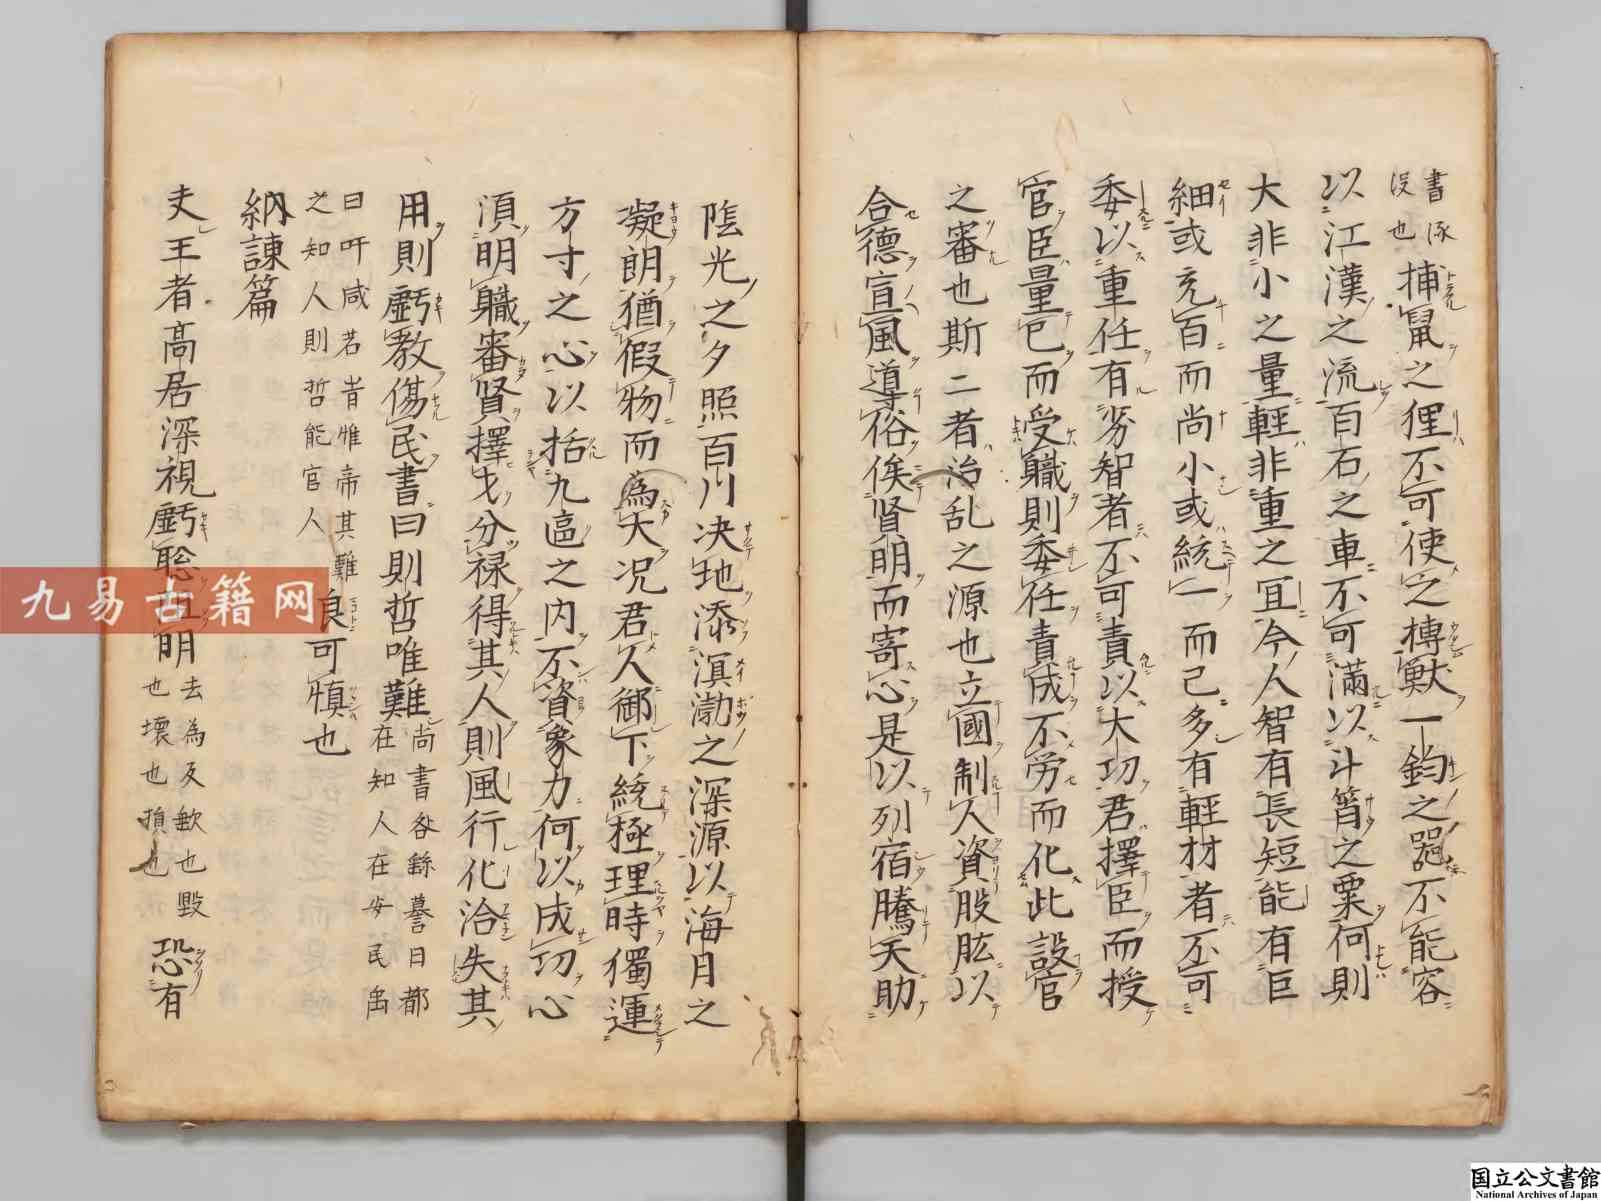 書涿
没也捕鼠之狸不可使之搏獣一鈞之器不能容
以江漢之流百石之車不可滿以斗筲之粟何則
大非小之量輕非重之冝今人智有長短能有巨
細或充百而尚小或統一而已多有輕材者不可
委以重任有劣智者不可責以大功君擇臣而授
官臣量已而受職則委任責成不労而化此設官
之審也斯二者治乱之源也立國制人資股肱以
合德宣風導俗俟賢明而寄心是以列宿騰天助
陰光之夕照百川决地添溟渤之深源以海月之
凝朗猶假物而為大况君人御下統極理時獨運
方寸之心以括九區之内不資象力何以成功心
湏明職審賢擇才分禄得其人則風行化洽失其
用則虧教傷民書曰則哲唯難尚書咎繇謩曰都
在知人在安民禹
曰吁咸若旹惟帝其難
之知人則哲能官人良可慎也
納諌篇
夫王者高居深視虧聡 明去為反欽也毀
也壊也損也恐有
九易古籍网
国立公文書館
National Archives of Japan